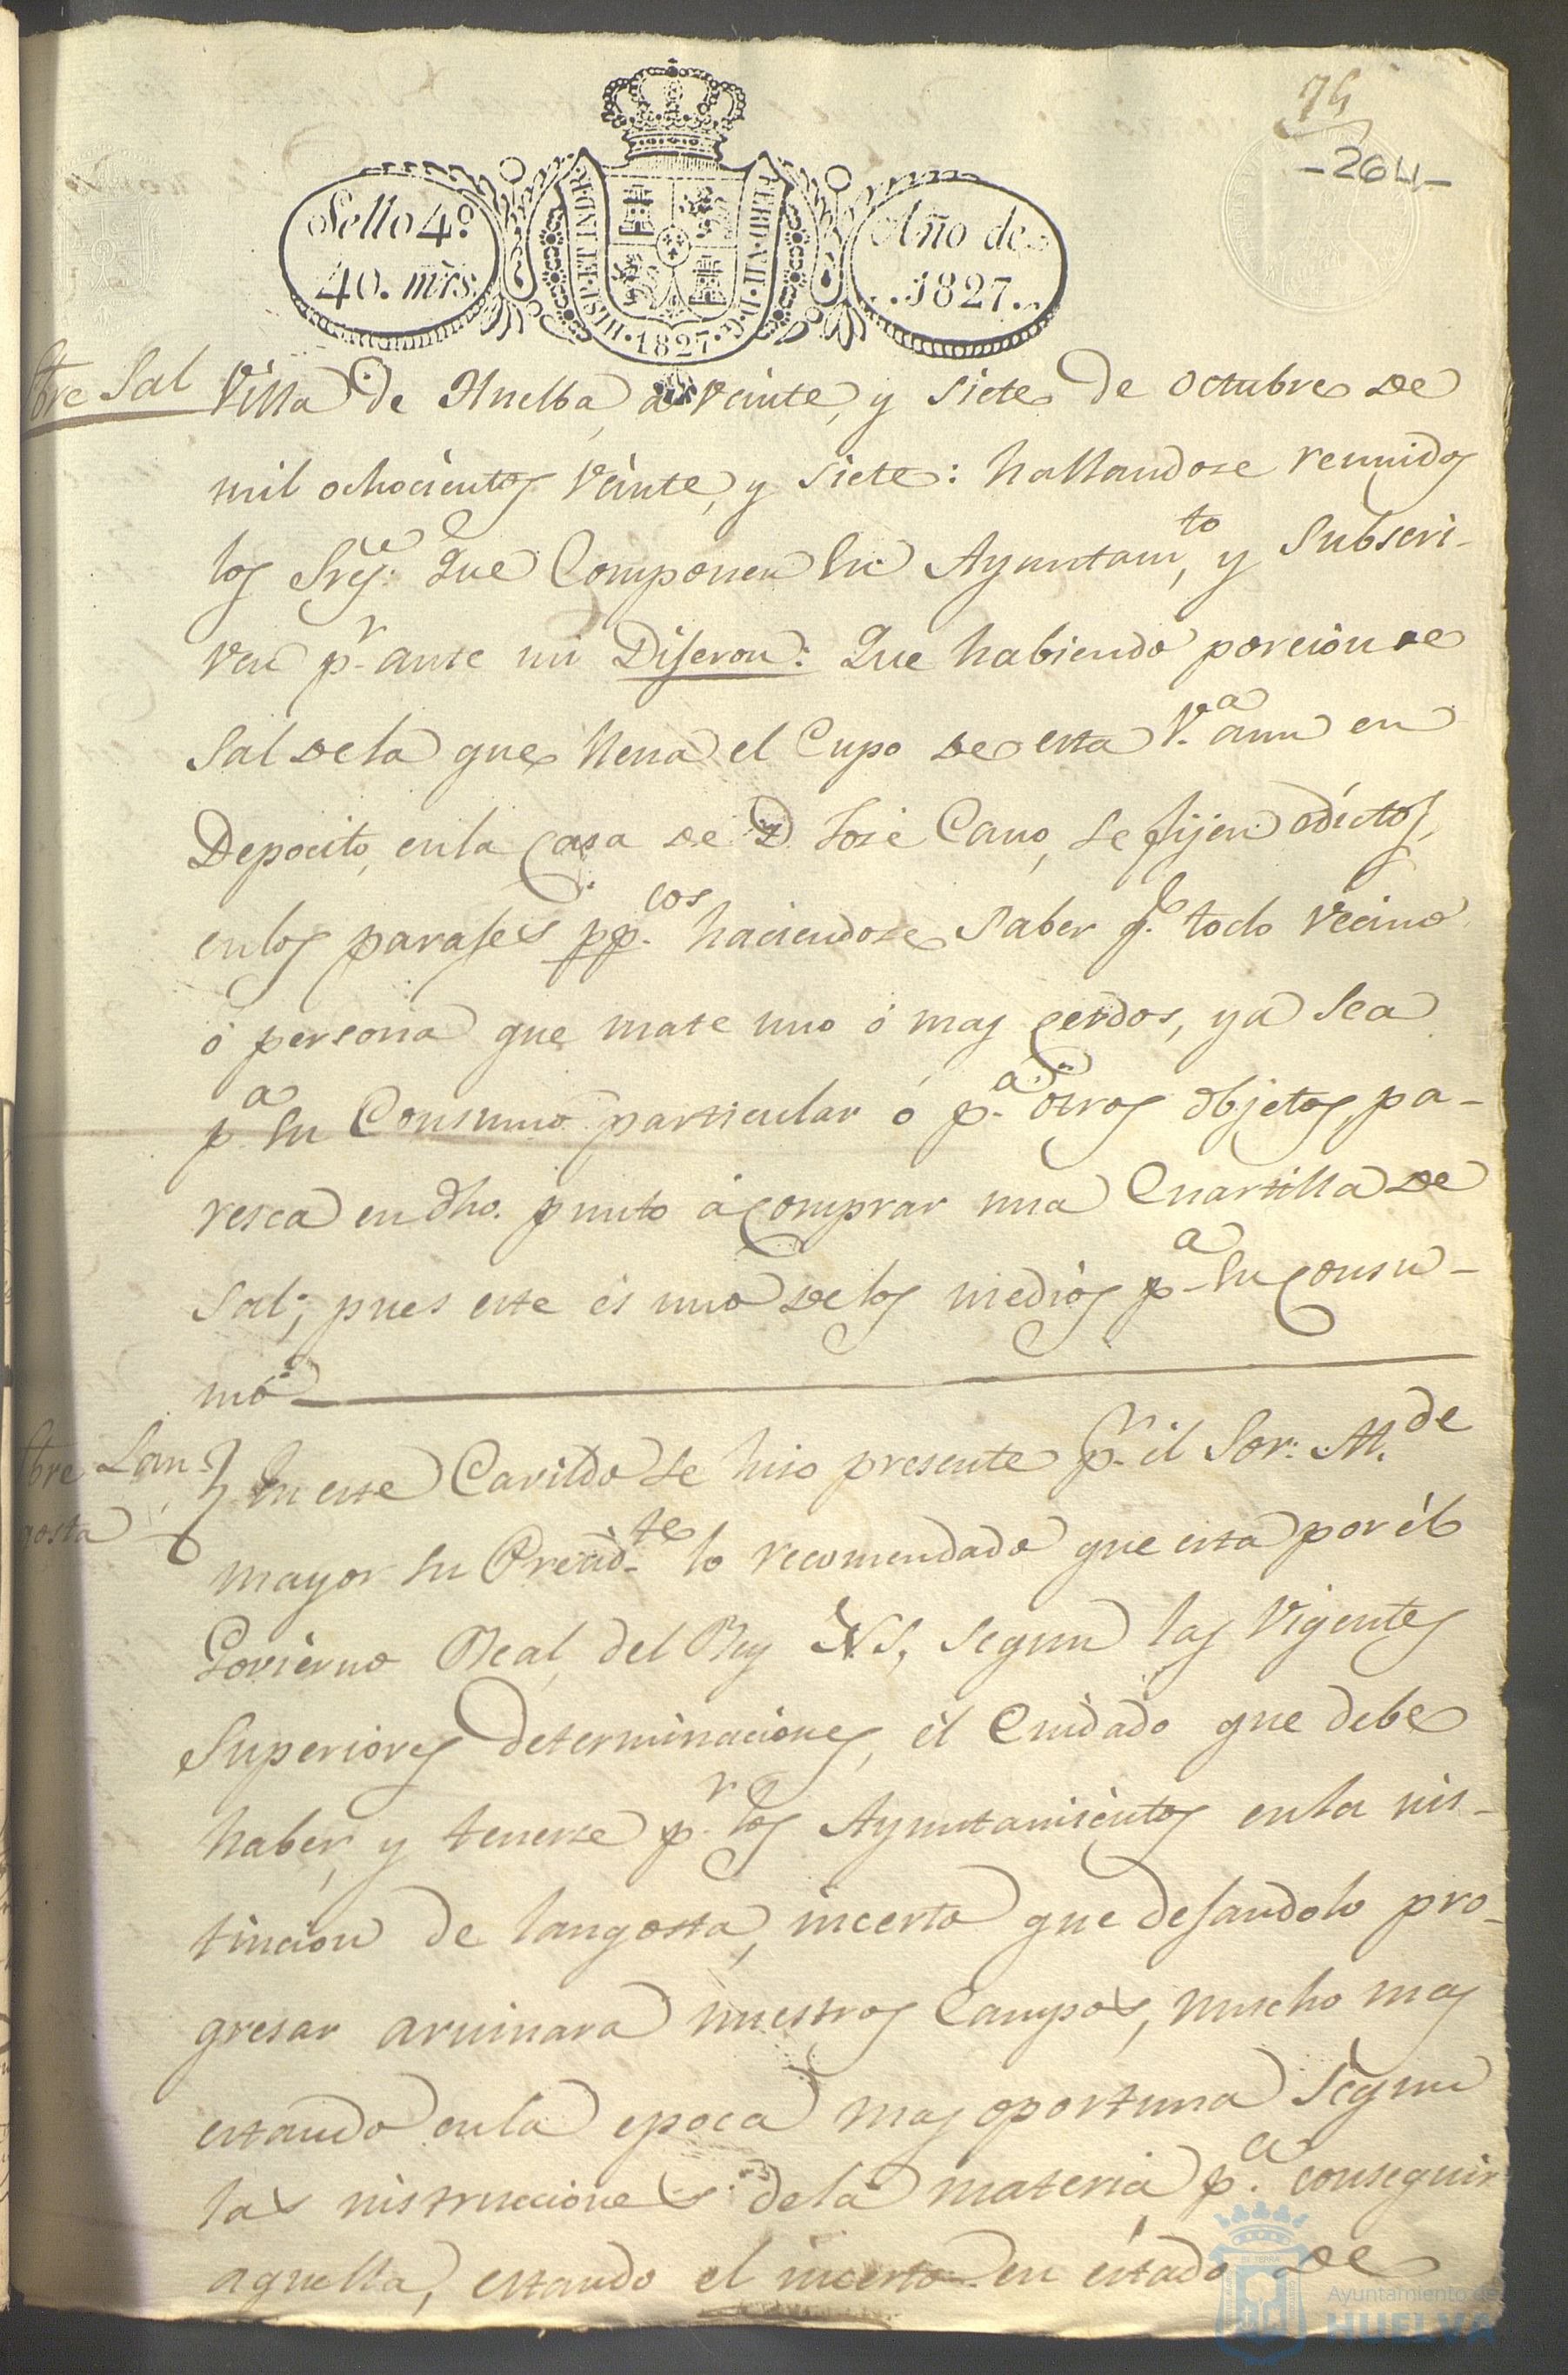 75
-264-
Sello 4º
40. mrs.
FERD·VII·D·G·HISP·ET·IND·R·
·1827·
Año de
..1827..
bre Sal
Villa de Huelba, a veinte, y siete de octubre de
mil ochocientos veinte, y siete: hallandose reunidos
los Sres. que Componen su Ayuntamto, y Subscri-
ven pr ante mi Dijeron: Que habiendo porcion de
Sal dela que llena el Cupo de esta V.a aun en
Depocito, enla Casa de D José Cano, se fijen edictos,
enlos parajes pp.cos haciendose Saber q.e todo vecino
ó persona que mate uno ó mas cerdos, ya Sea
p.a su Consumo particular ó p.a otros objetos, pa-
resca en dho. punto á comprar una Cuartilla de
Sal; pues este és uno delos medios p.a su consu-
mo
bre Lan-
gosta
En este Cavildo se hiso presente p.r el Sor. Al.de
mayor su Presid.te lo recomendado que esta por él
Govierno Real del Rey N S, segun las vigentes
Superiores determinaciones, él Cuidado que debe
haber, y tenerse p.r los Ayuntamientos enla ins-
tincion de langosta, incerto que dejandolo pro-
gresar aruinara nuestros Campos, mucho mas
estando enla epoca mas oportuna Segun
las instrucciones dela materia, p.a conseguir
aquella, estando el incerto en éstado de
Ayuntamiento de
HUELVA